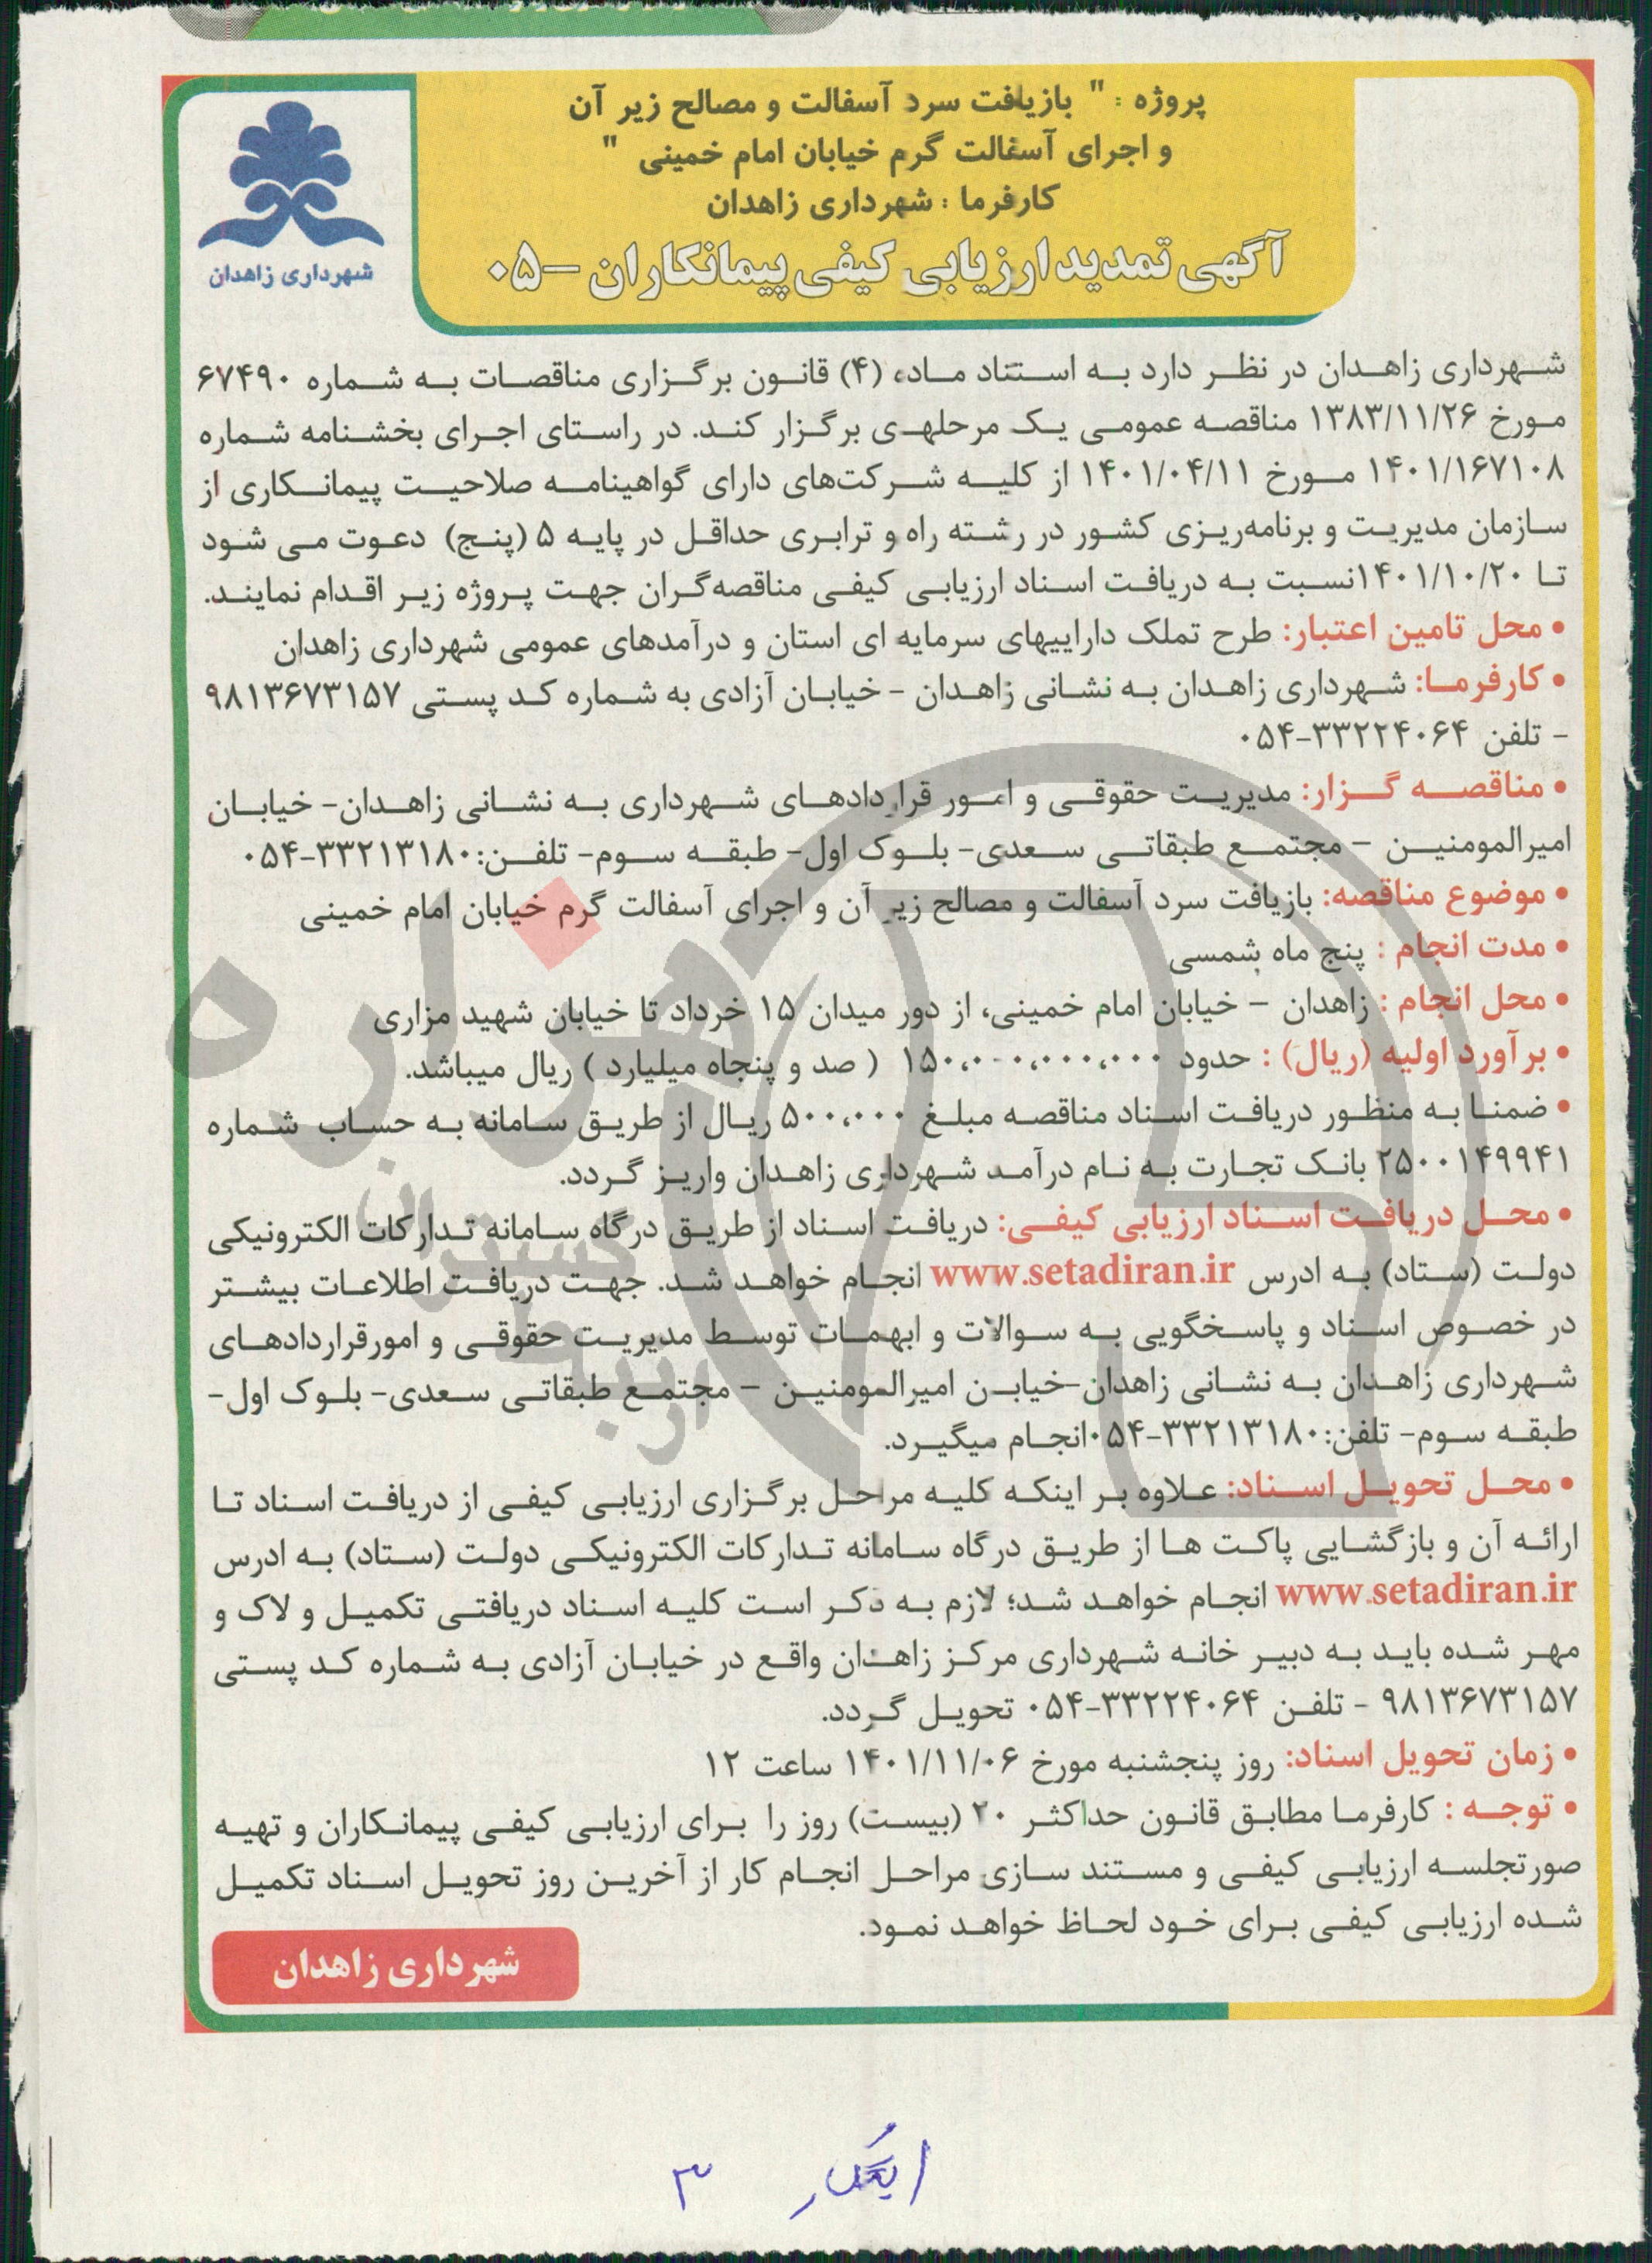 پروژه : " بازیافت سرد آسفالت و مصالح زیر آن
و اجرای آسفالت گرم خیابان امام خمینی "
کارفرما : شهرداری زاهدان
آگهی تمدید ارزیابی کیفی پیمانکاران -۰۵
شهرداری زاهدان
شهرداری زاهدان در نظر دارد به استناد ماده (۴) قانون برگزاری مناقصات به شماره ۶۷۴۹۰
مورخ ۱۳۸۳/۱۱/۲۶ مناقصه عمومی یک مرحلهی برگزار کند. در راستای اجرای بخشنامه شماره
۱۴۰۱/۱۶۷۱۰۸ مورخ ۱۴۰۱/۰۴/۱۱ از کلیه شرکت‌های دارای گواهینامه صلاحیت پیمانکاری از
سازمان مدیریت و برنامه‌ریزی کشور در رشته راه و ترابری حداقل در پایه ۵ (پنج) دعوت می شود
تا ۱۴۰۱/۱۰/۲۰نسبت به دریافت اسناد ارزیابی کیفی مناقصه‌گران جهت پروژه زیر اقدام نمایند.
• محل تامین اعتبار: طرح تملک داراییهای سرمایه ای استان و درآمدهای عمومی شهرداری زاهدان
• کارفرما: شهرداری زاهدان به نشانی زاهدان - خیابان آزادی به شماره کد پستی ۹۸۱۳۶۷۳۱۵۷
- تلفن ۳۳۲۲۴۰۶۴-۰۵۴
• مناقصه گزار: مدیریت حقوقی و امور قراردادهای شهرداری به نشانی زاهدان- خیابان
امیرالمومنین - مجتمع طبقاتی سعدی- بلوک اول- طبقه سوم- تلفن:۳۳۲۱۳۱۸۰-۰۵۴
• موضوع مناقصه: بازیافت سرد آسفالت و مصالح زیر آن و اجرای آسفالت گرم خیابان امام خمینی
• مدت انجام : پنج ماه شمسی
• محل انجام : زاهدان - خیابان امام خمینی، از دور میدان ۱۵ خرداد تا خیابان شهید مزاری
• برآورد اولیه (ریال) : حدود ۱۵۰،۰۰۰،۰۰۰،۰۰۰ ( صد و پنجاه میلیارد ) ریال میباشد.
• ضمنا به منظور دریافت اسناد مناقصه مبلغ ۵۰۰،۰۰۰ ریال از طریق سامانه به حساب شماره
۲۵۰۰۱۴۹۹۴۱ بانک تجارت به نام درآمد شهرداری زاهدان واریز گردد.
• محل دریافت اسناد ارزیابی کیفی: دریافت اسناد از طریق درگاه سامانه تدارکات الکترونیکی
دولت (ستاد) به ادرس www.setadiran.ir انجام خواهد شد. جهت دریافت اطلاعات بیشتر
در خصوص اسناد و پاسخگویی به سوالات و ابهمات توسط مدیریت حقوقی و امورقراردادهای
شهرداری زاهدان به نشانی زاهدان-خیابن امیرالمومنین - مجتمع طبقاتی سعدی- بلوک اول-
طبقه سوم- تلفن:۳۳۲۱۳۱۸۰-۰۵۴انجام میگیرد.
• محل تحویل اسناد: علاوه بر اینکه کلیه مراحل برگزاری ارزیابی کیفی از دریافت اسناد تا
ارائه آن و بازگشایی پاکت ها از طریق درگاه سامانه تدارکات الکترونیکی دولت (ستاد) به ادرس
www.setadiran.ir انجام خواهد شد؛ لازم به ذکر است کلیه اسناد دریافتی تکمیل و لاک و
مهر شده باید به دبیر خانه شهرداری مرکز زاهدان واقع در خیابان آزادی به شماره کد پستی
۹۸۱۳۶۷۳۱۵۷ - تلفن ۳۳۲۲۴۰۶۴-۰۵۴ تحویل گردد.
• زمان تحویل اسناد: روز پنجشنبه مورخ ۱۴۰۱/۱۱/۰۶ ساعت ۱۲
• توجه : کارفرما مطابق قانون حداکثر ۲۰ (بیست) روز را برای ارزیابی کیفی پیمانکاران و تهیه
صورتجلسه ارزیابی کیفی و مستند سازی مراحل انجام کار از آخرین روز تحویل اسناد تکمیل
شده ارزیابی کیفی برای خود لحاظ خواهد نمود.
شهرداری زاهدان
۳